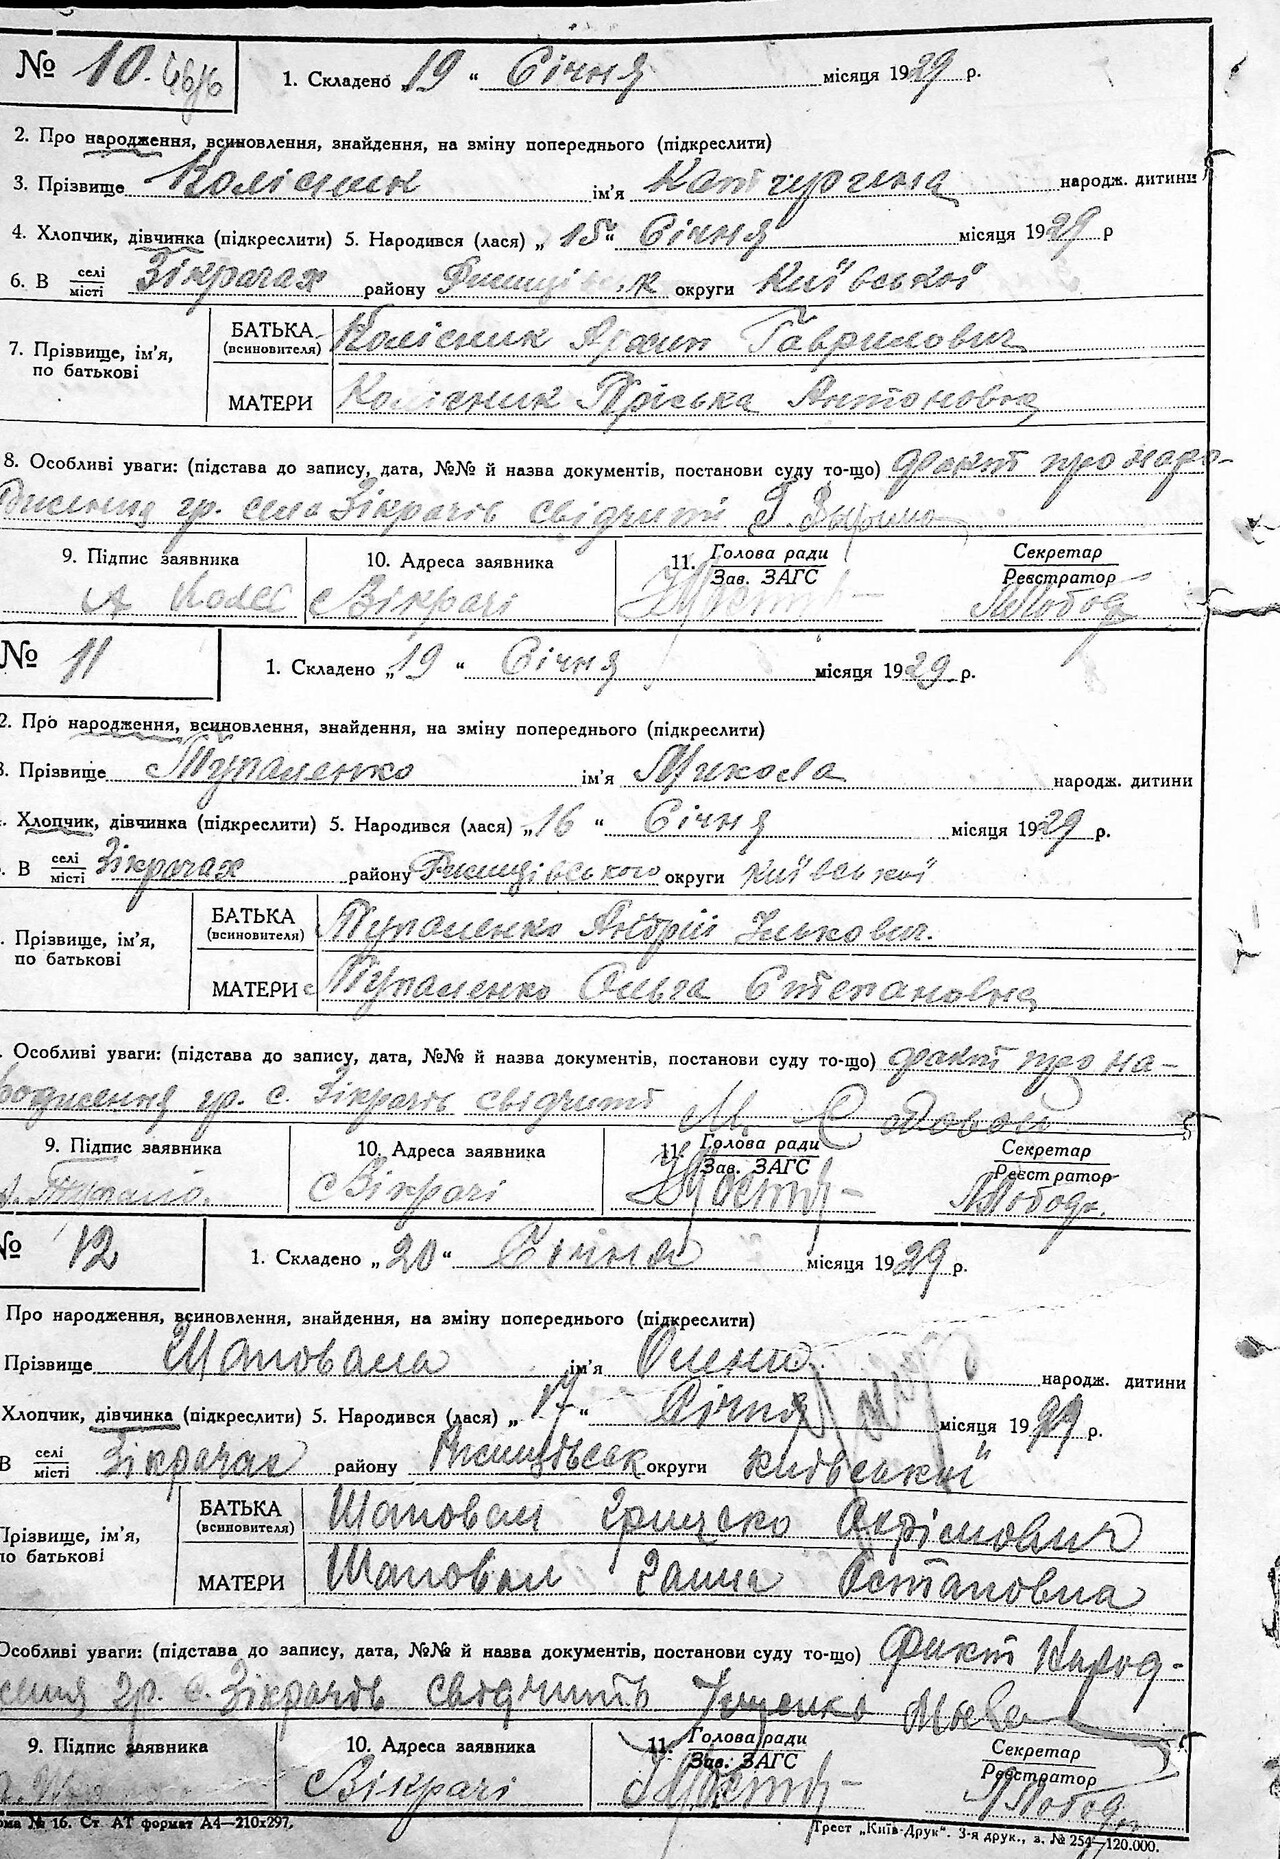 № 10. 1. Складено 19 " Січня місяця 1929 р.
2. Про народження, всиновлення, знайдення, на зміну попереднього (підкреслити)
3. Прізвище Колісник ім'я Катерина народж. дитини
4. Хлопчик, дівчинка (підкреслити) 5. Народився (лася) „ 15 " Січня місяця 1929 р
6. В селі місті Зікрачах району округи Київської
7. Прізвище, ім'я, по батькові
БАТЬКА (всиновителя) Колісник Архип Гаврилович
МАТЕРИ Колісник Пріська Антоновна
8. Особливі уваги: (підстава до запису, дата, №№ й назва документів, постанови суду то-що) факт про наро-
дження гр. села Зікрачів свідчить
9. Підпис заявника 10. Адреса заявника 11. Голова ради Зав. ЗАГС Секретар Реєстратор
А Колес с Зікрачі
№ 11 1. Складено „ 19 " Січня місяця 1929 р.
2. Про народження, всиновлення, знайдення, на зміну попереднього (підкреслити)
3. Прізвище Тупаленко ім'я Микола народж. дитини
. Хлопчик, дівчинка (підкреслити) 5. Народився (лася) „ 16 " Січня місяця 1929 р.
. В селі місті Зікрачах району Ржищівського округи Київської
. Прізвище, ім'я, по батькові
БАТЬКА (всиновителя) Тупаленко Андрій Ількович.
МАТЕРИ Тупаленко Ольга Степановна
. Особливі уваги: (підстава до запису, дата, №№ й назва документів, постанови суду то-що) факт про на-
родження гр. с. Зікрачів свідчить
9. Підпис заявника 10. Адреса заявника 11. Голова ради Зав. ЗАГС Секретар Реєстратор
с Зікрачі
№ 12 1. Складено „ 20 " Січня місяця 1929 р.
Про народження, всиновлення, знайдення, на зміну попереднього (підкреслити)
Прізвище Шаповала ім'я Олена народж. дитини
Хлопчик, дівчинка (підкреслити) 5. Народився (лася) „ 17 " Січня місяця 1929 р.
В селі місті Зікрачах району Ржищівськ округи Київської
Прізвище, ім'я, по батькові
БАТЬКА (всиновителя) Шаповал Грицько Охрімович
МАТЕРИ Шаповал Ганна Остаповна
Особливі уваги: (підстава до запису, дата, №№ й назва документів, постанови суду то-що) Факт Народ-
ження гр. с. Зікрачів свідчить
9. Підпис заявника 10. Адреса заявника 11. Голова ради Зав. ЗАГС Секретар Реєстратор
с Зікрачі
ма № 16. Ст. АТ формат А4—210х297. Трест „Київ-Друк". 3-я друк., з. № 254—120.000.